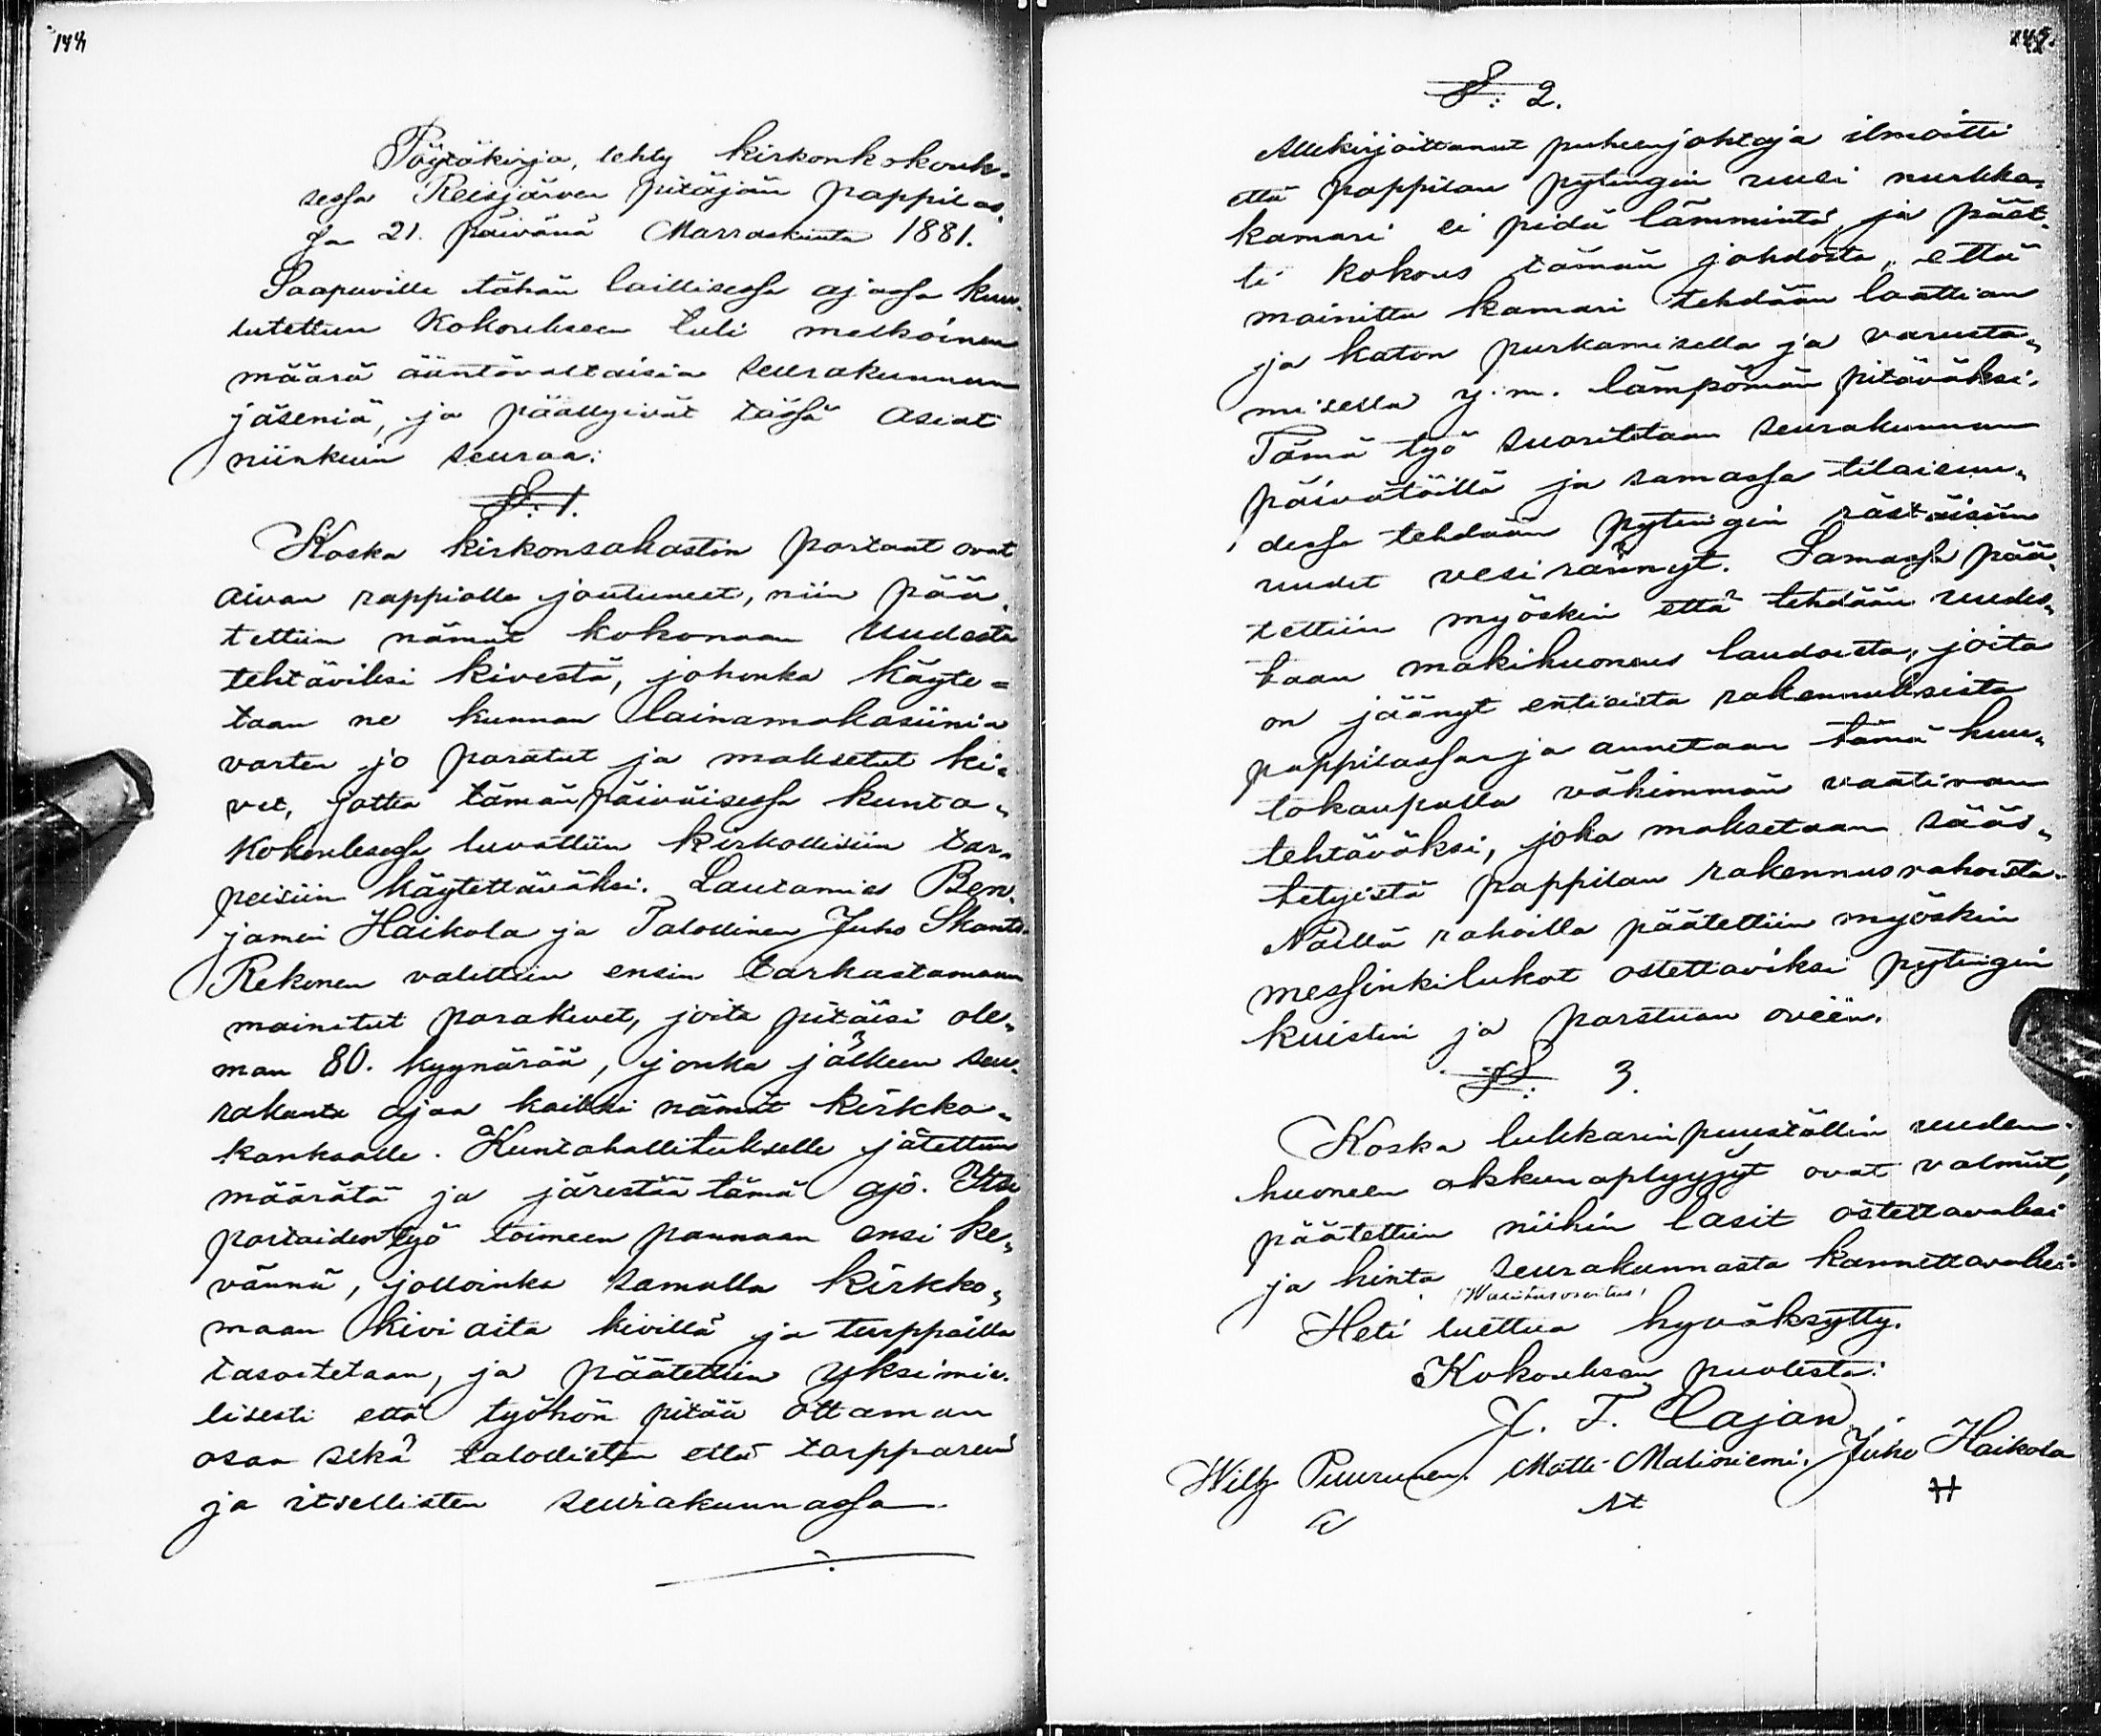 144
Pöytäkirja, tehty kirkonkokouk-
sessa Reisjärven pitäjän pappilas-
sa 21. päivänä Marraskuuta 1881.
Saapuville tähän laillisessa ajassa kuu-
lutettuun Kokoukseen tuli melkoinen
määrä ääntövaltaisia seurakunnan
jäseniä, ja päättyivät tässä asiat
niinkuin seuraa:
§: 1.
Koska kirkonsakastin portaat ovat
aivan rappiolle joutuneet, niin pää-
tettiin nämät kokonaan uudesta
tehtäviksi kivestä, johonka käyte=
taan ne kunnan lainamakasiinia
varten jo paratut ja maksetut ki-
vet, jotka tämänpäiväisessä kunta-
kokouksessa luvattiin kirkollisiin tar-
peisiin käytettäväksi. Lautamies Ben-
jamin Haikola ja Talollinen Juho Skants-
Rekonen valittiin ensin tarkastamaan
mainitut parakivet, joita pitäisi ole-
man 80. kyynärää, jonka jälkeen seu-
rakunta ajaa kaikki nämät kirkko-
kankaalle. Kuntahallitukselle jätettiin
määrätä ja järestää tämä ajo. Itse
portaiden työ toimeen pannaan ensi ke-
väännä, jolloinka samalla kirkko-
maan kivi aita kivillä ja turppailla
tasoitetaan, ja päätettiin yksimie-
lisesti että työhön pitää ottaman
osaa sekä talollisten että torpparein
ja itsellisten seurakunnassa.
§: 2.
Allekirjoittanut puheenjohtaja ilmoitti
että pappilan pytingin uusi nurkka-
kamari ei pidä lämmintä, ja päät-
ti kokous tämän johdosta, että
mainittu kamari tehdään laattian
ja katon purkamisella ja varusta-
misella y. m. lämpömän pitäväksi.
Tämä työ suoritetaan seurakunnan
päivätöillä ja samassa tilaisuu-
dessa tehdään pytingin rästäisiin
uudet vesirännyt. Samassa pää-
tettiin myöskin että tehdään uudes-
taan makihuoneus laudoista, joita
on jäänyt entisistä rakennuksista
pappilassa ja annetaan tämä huu-
tokaupalla vähimmän vaativan
tehtäväksi, joka maksetaan sääs-
tetyistä pappilan rakennusrahoista.
Näillä rahoilla päätettiin myöskin
messinkilukot ostettaviksi pytingin
kuistin ja porstuan oviin.
§: 3.
Koska lukkarinpuustöllin uuden
huoneen akkunaplyyjyt ovat valmiit,
päätettiin niihin lasit ostettavaksi
ja hinta seurakunnasta kannettavaksi.
Heti luettua hyväksytty.
Kokouksen puolesta:
J. F. Cajan
Wilh Puurunen. Matti Maliniemi. Juho Haikola